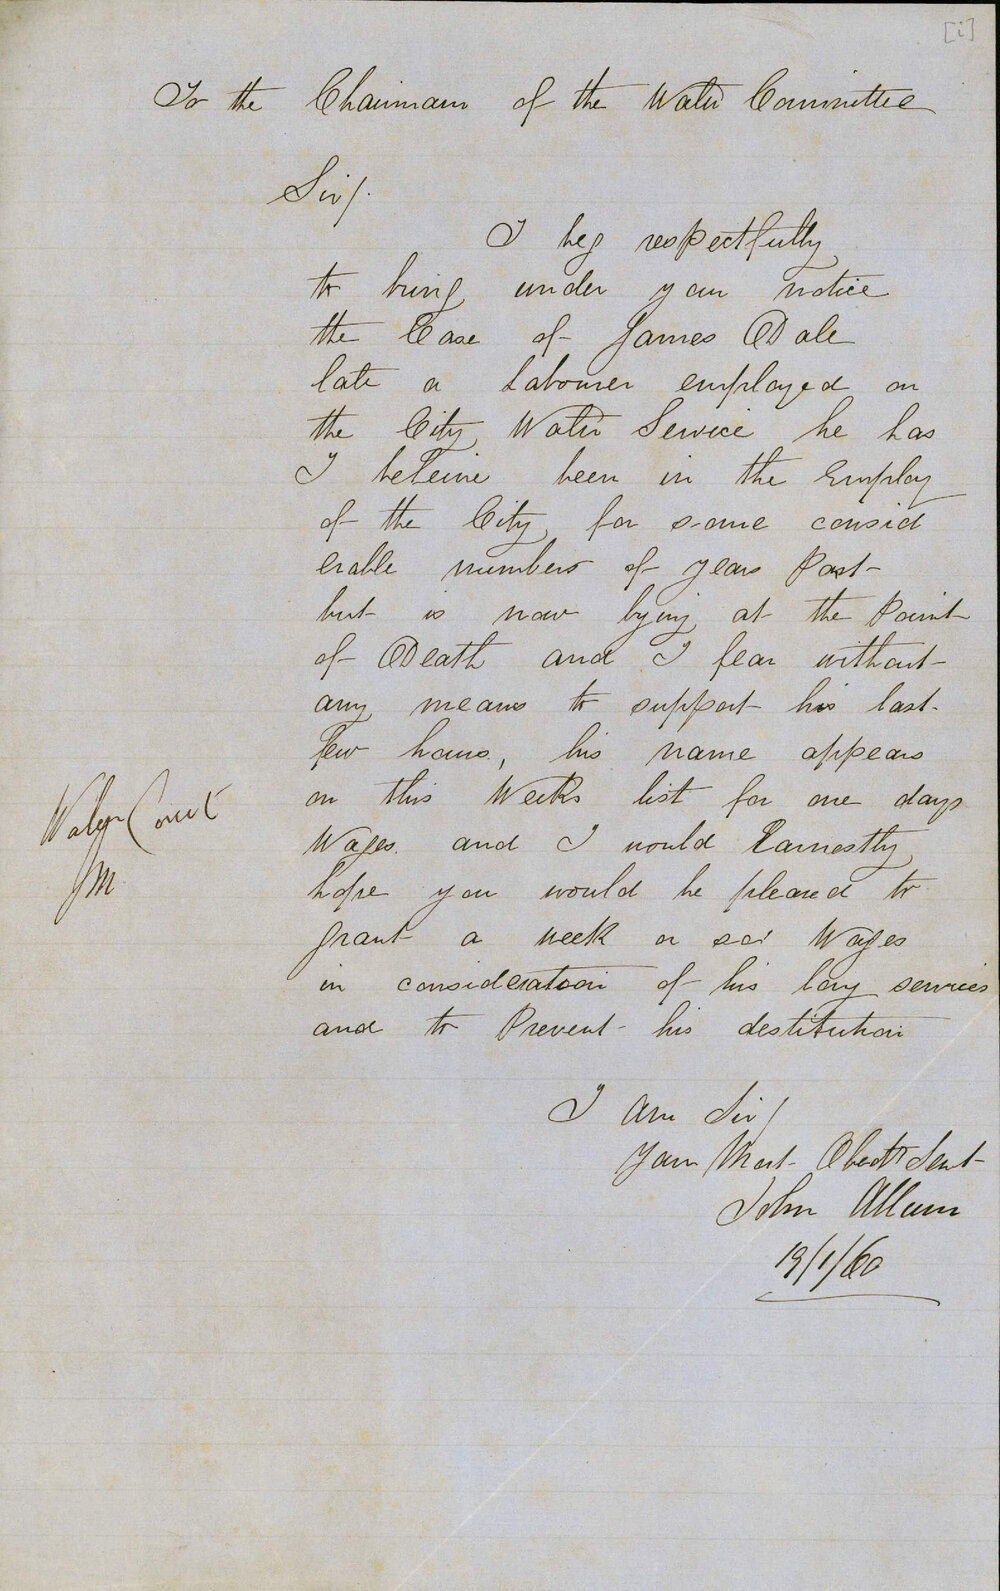 [i]
To the Chairman of the Water Committee
Sir/.
I beg respectfully
to bring under your notice
the Case of James Dale
late a Labourer employed on
the City Water Service he has
I beleive been in the Employ
of the City for some consid
erable numbers of years Past
but is now lying at the Point
of Death and I fear without
any means to support his last
few hours, his name appears
on this Weeks list for one days
Wages and I would Earnestly
hope you would be pleased to
grant a week or so's Wages
in consideration of his long services
and to Prevent his destitution
Water Comt
JM
I am Sir/
Your Most Obedt Servt
John Allum
19/1/60